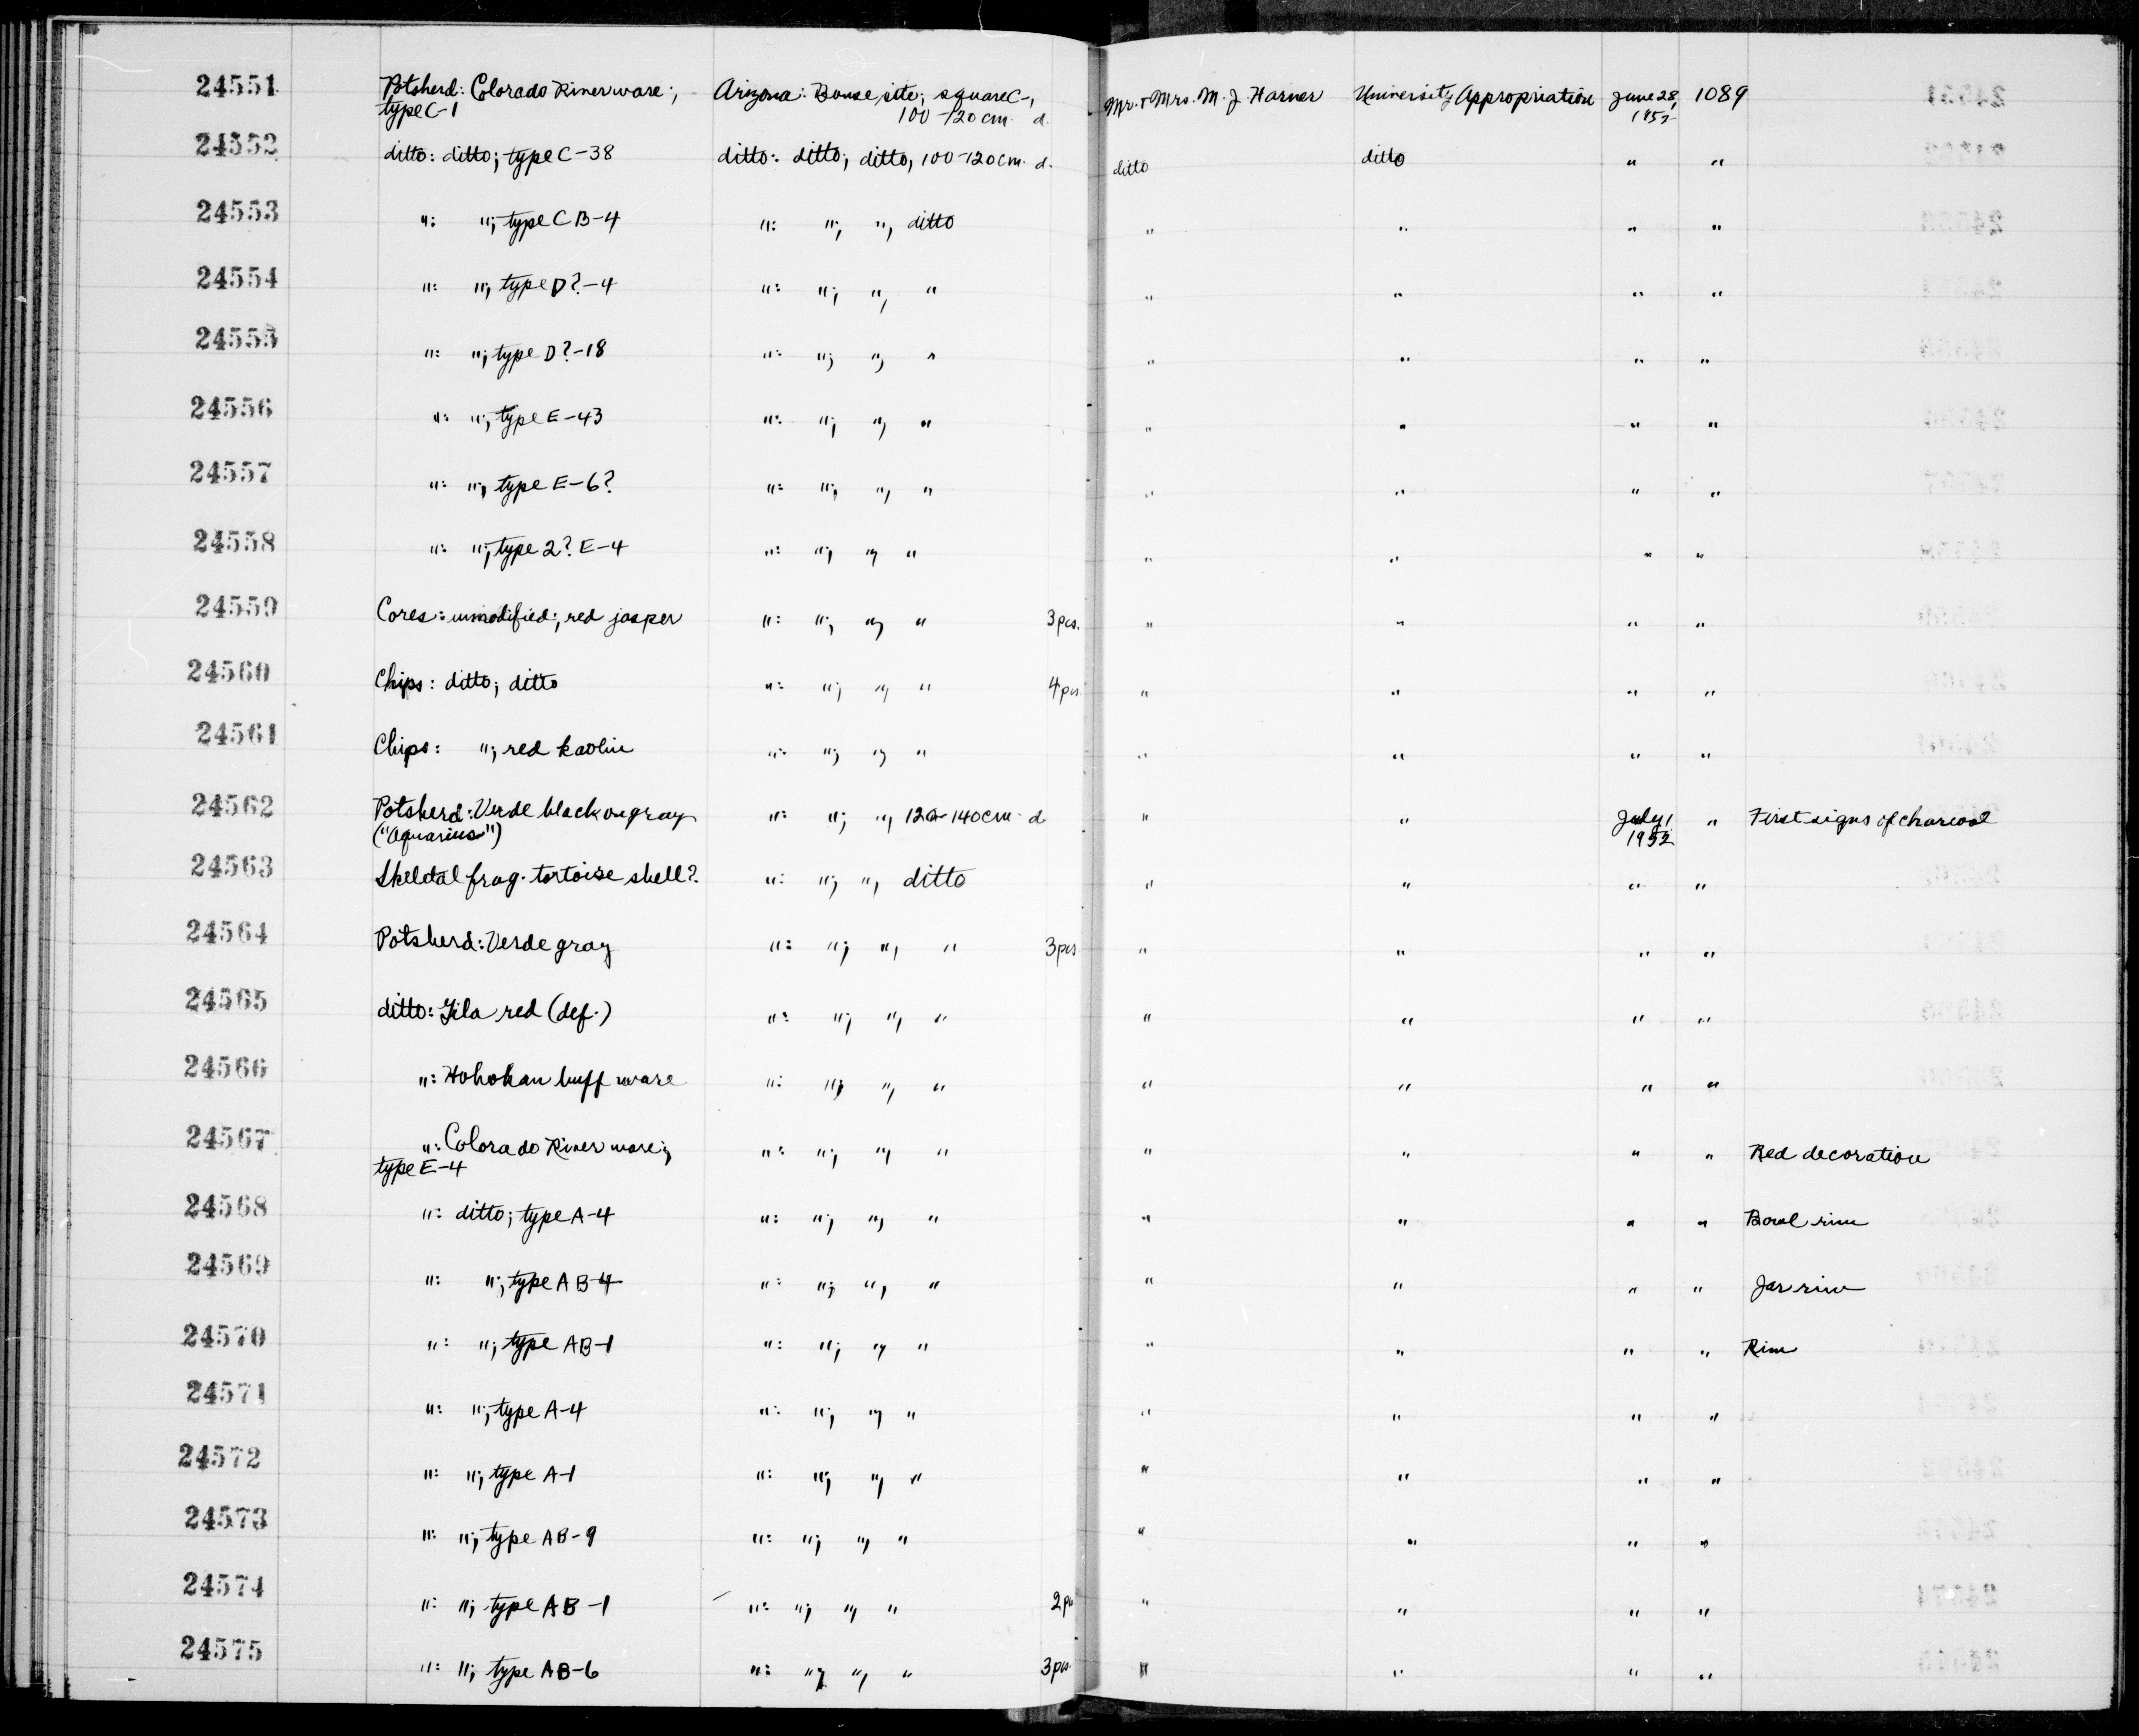 24551 Potsherd: Colorado River ware; Arizona: Bouse site; square C-1, Mr. & Mrs. M. J. Harner University Appropriation June 28, 1089
type C-1 100-120 cm. d. 1952
24552 ditto: ditto; type C-38 ditto: ditto; ditto, 100-120 cm. d. ditto ditto " "
24553 ": "; type CB-4 ": "; ", ditto " " " "
24554 ": "; type D?-4 ": "; ", " " " " "
24555 ": "; type D?-18 ": "; ", " " " " "
24556 ": "; type E-43 ": "; ", " " " " "
24557 ": "; type E-6? ": "; ", " " " " "
24558 ": "; type 2? E-4 ": "; ", " " " " "
24559 Cores: unmodified; red jasper ": "; ", " 3 pcs. " " " "
24560 Chips: ditto; ditto ": "; ", " 4 pcs. " " " "
24561 Chips: "; red kaolin ": "; ", " " " " "
24562 Potsherd: Verde black on gray ": "; ", 120-140 cm. d. " " July 1 " First signs of charcoal
("Aquarius") 1952
24563 Skeletal frag. tortoise shell? ": "; ", ditto " " " "
24564 Potsherd: Verde gray ": "; ", " 3 pcs " " " "
24565 ditto: Gila red (def.) ": "; ", " " " " "
24566 ": Hohokan buff ware ": "; ", " " " " "
24567 ": Colorado River ware; ": "; ", " " " " " Red decoration
type E-4
24568 ": ditto; type A-4 ": "; ", " " " " " Bowl rim
24569 ": "; type AB-4 ": "; ", " " " " " Jar rim
24570 ": "; type AB-1 ": "; ", " " " " " Rim
24571 ": "; type A-4 ": "; ", " " " " "
24572 ": "; type A-1 ": "; ", " " " " "
24573 ": "; type AB-9 ": "; ", " " " " "
24574 ": "; type AB-1 ": "; ", " 2 pcs " " " "
24575 ": "; type AB-6 ": "; ", " 3 pcs. " " " "